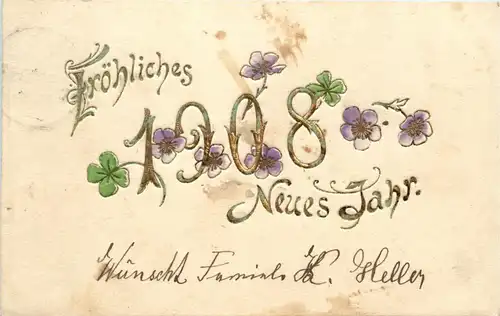 Fröhliches
1908
Neues Jahr.
Wünscht Familie K. Heller